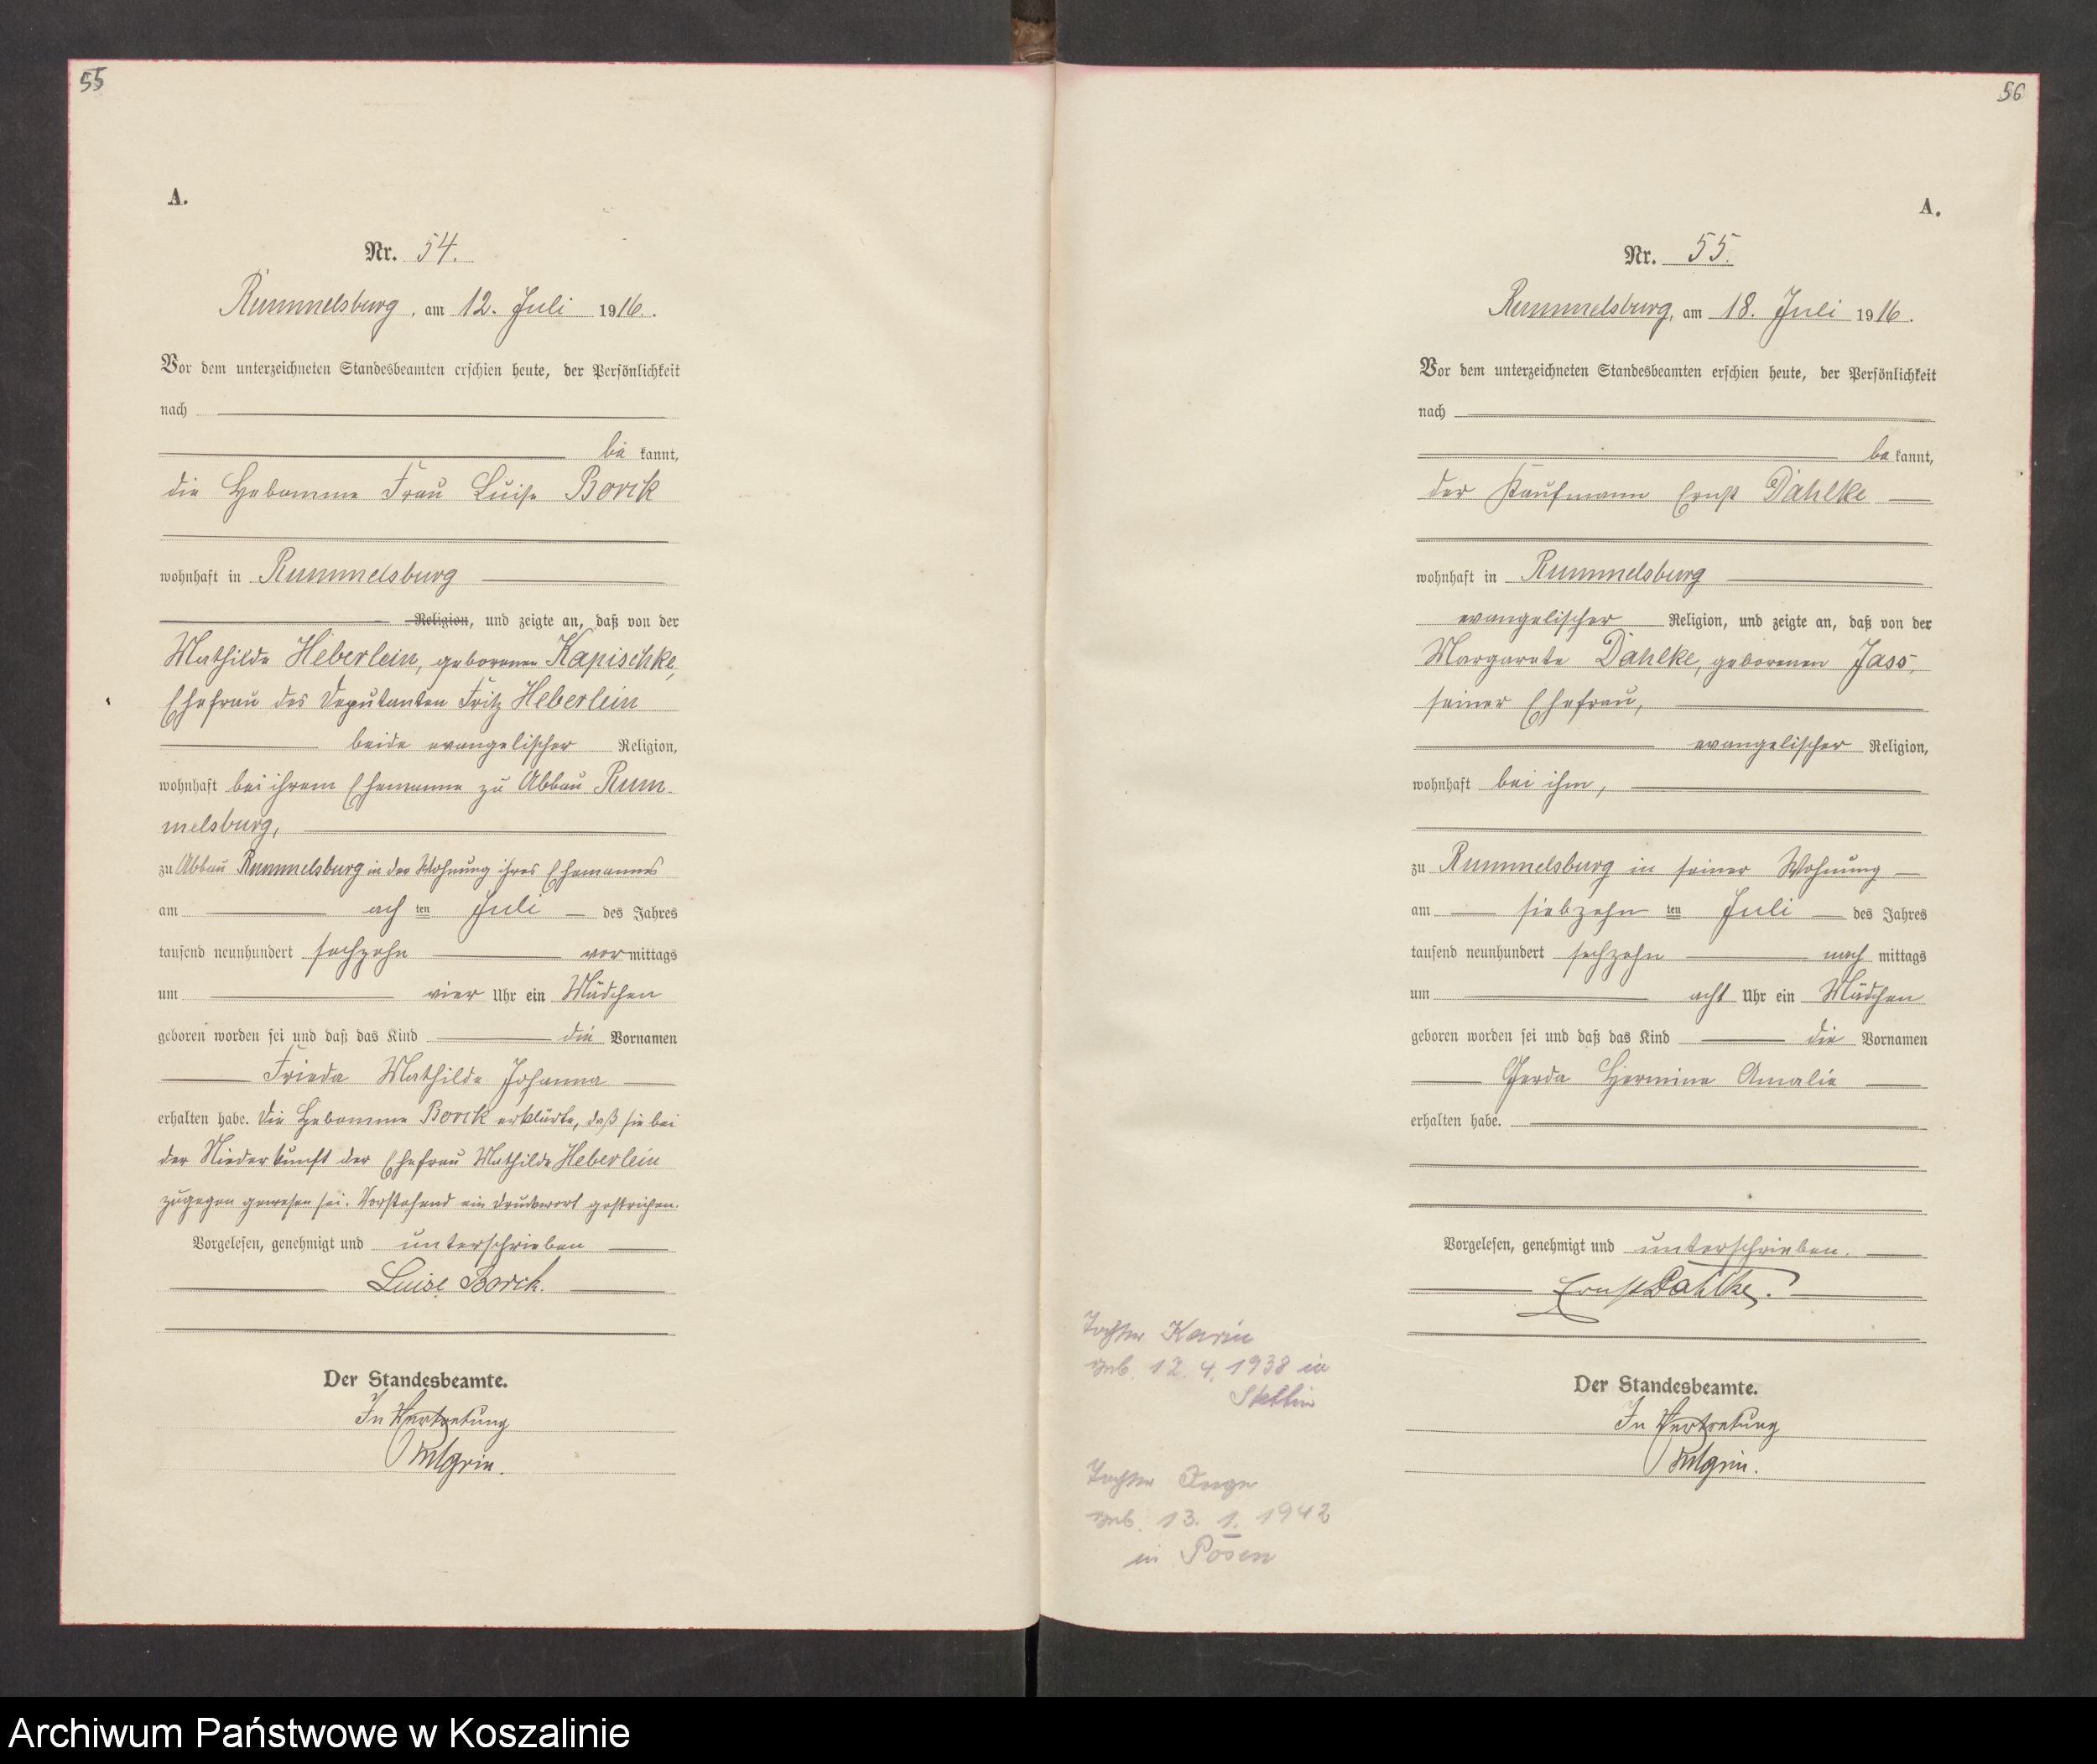 55
A.
Nr. 54.
Rummelsburg, am 12. Juli 1916.
Vor dem unterzeichneten Standesbeamten erschien heute, der Persönlichkeit
nach
bekannt,
die Hebamme Frau Luise Borck
wohnhaft in Rummelsburg
Religion, und zeigte an, daß von der
Mathilde Heberlein, geborenen Kapischke,
Ehefrau des Deputanten Fritz Heberlein
beide evangelischer Religion,
wohnhaft bei ihrem Ehemanne zu Abbau Rum-
melsburg,
zu Abbau Rummelsburg in der Wohnung ihres Ehemannes
am ach ten Juli des Jahres
tausend neunhundert sechzehn vormittags
um vier Uhr ein Mädchen
geboren worden sei und daß das Kind die Vornamen
Frieda Mathilde Johanna
erhalten habe. Die Hebamme Borck erklärte, daß sie bei
der Niederkunft der Ehefrau Mathilde Heberlein
zugegen gewesen sei. Vorstehend ein Druckwort gestrichen.
Vorgelesen, genehmigt und unterschrieben
Luise Borck.
Der Standesbeamte.
In Vertretung
56
A.
Nr. 55.
Rummelsburg, am 18. Juli 1916.
Vor dem unterzeichneten Standesbeamten erschien heute, der Persönlichkeit
nach
bekannt,
der Kaufmann Ernst Dahlke
wohnhaft in Rummelsburg
evangelischer Religion, und zeigte an, daß von der
Margarete Dahlke, geborenen Jass,
seiner Ehefrau,
evangelischer Religion,
wohnhaft bei ihm,
zu Rummelsburg in seiner Wohnung
am siebzehn ten Juli des Jahres
tausend neunhundert sechzehn nachmittags
um acht Uhr ein Mädchen
geboren worden sei und daß das Kind die Vornamen
Gerda Hermine Amalie
erhalten habe.
Vorgelesen, genehmigt und unterschrieben.
Ernst Dahlke.
Der Standesbeamte.
In Vertretung
Tochter Karin
geb. 12. 4. 1938 in
Stettin
Tochter
geb. 13. 1. 1942
in Posen
Archiwum Państwowe w Koszalinie